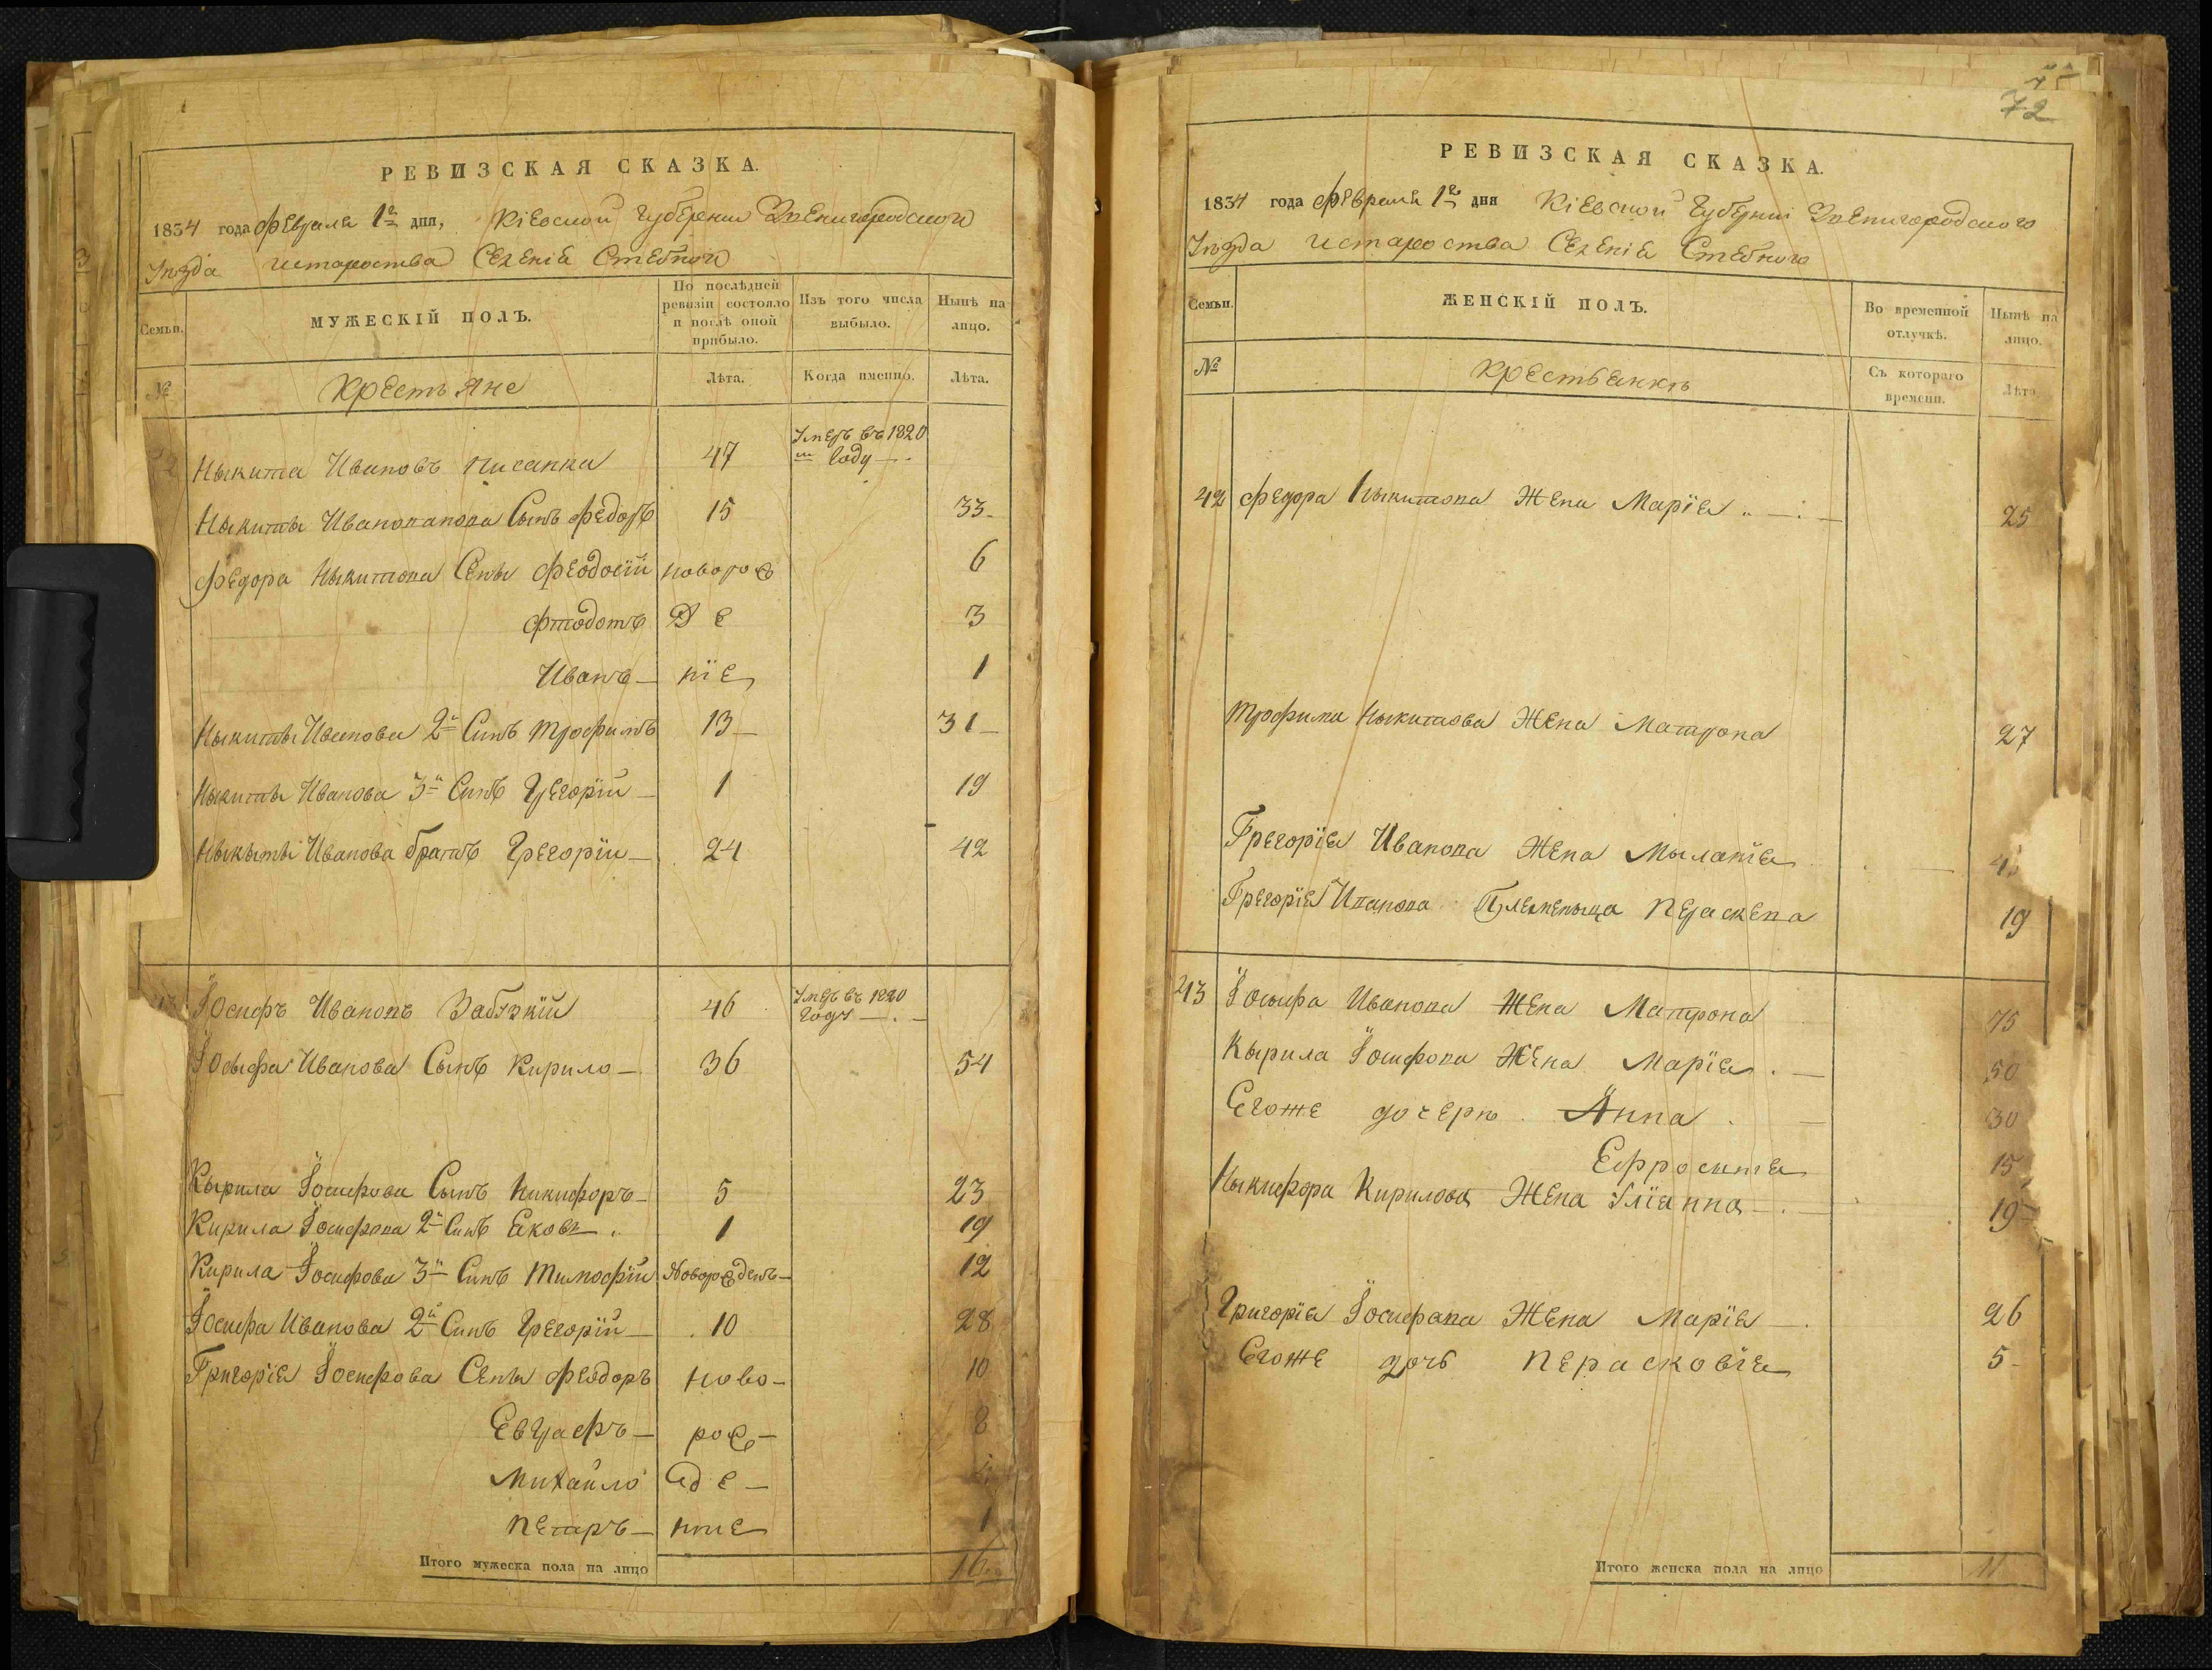 РЕВИЗСКАЯ СКАЗКА.
1834 года февраля 1го дня, Кіевской Губерніи Звенигородского
Уѣзда и староства Селенія Стебного
Семьи.
МУЖЕСКІЙ ПОЛЪ.
По послѣдней ревизіи состояло и послѣ оной прибыло.
Изъ того числа выбыло.
Нынѣ на лицо.
№
Крестьяне
Лѣта.
Когда именно.
Лѣта.
Ныкита Ивановъ Писанка 47 Умеръ въ 1820 м году
Ныкиты Иванова Сынъ Федоръ 15 33
Федора Ныкитова Сены Феодосій новорож 6
Федотъ де 3
Иванъ ніе 1
Ныкиты Иванова 2й Синъ Трофимъ 13 31
Ныкиты Иванова 3й Синъ Грегорій 1 19
Ныкиты Иванова братъ Грегорій 24 42
Іосифъ Ивановъ 46 Умеръ въ 1820 году
Іосыфа Иванова Сынъ Кирило 36 54
Кырила Іосифова Сынъ Никифоръ 5 23
Кирила Іосифова 2й Синъ Яковъ 1 19
Кирила Іосифова 3й Синъ Тимофій Новорожденъ 12
Іосифа Иванова 2й Синъ Грегорій 10 28
Григорія Іосифова Сены Феодоръ ново- 10
Евграфъ рож- 8
Михайло де
Петръ ные 1
Итого мужеска пола на лицо 16
72
РЕВИЗСКАЯ СКАЗКА.
1834 года февраля 1го дня Кіевской Губерніи Звенигородского
Уѣзда и староства Селенія Стебного
Семьи.
ЖЕНСКІЙ ПОЛЪ.
Во временной отлучкѣ.
Нынѣ на лицо.
№
Крестьянкѣ
Съ котораго времени.
Лѣта.
42 Федора Ныкитова Жена Марія 25
Трофима Ныкитова Жена Матрона 27
Грегорія Иванова Жена Мыланія
Грегорія Иванова Племеныца Пераскева 19
43 Іосыфа Иванова Жена Матрона 75
Кырила Іосифова Жена Марія 50
Егоже дочерѣ Анна 30
Ефросынія 15
Ныкифора Кирилова Жена Уліанна 19
Григорія Іосифова Жена Марія 26
Егоже дочь Перасковія 5
Итого женска пола на лицо 11